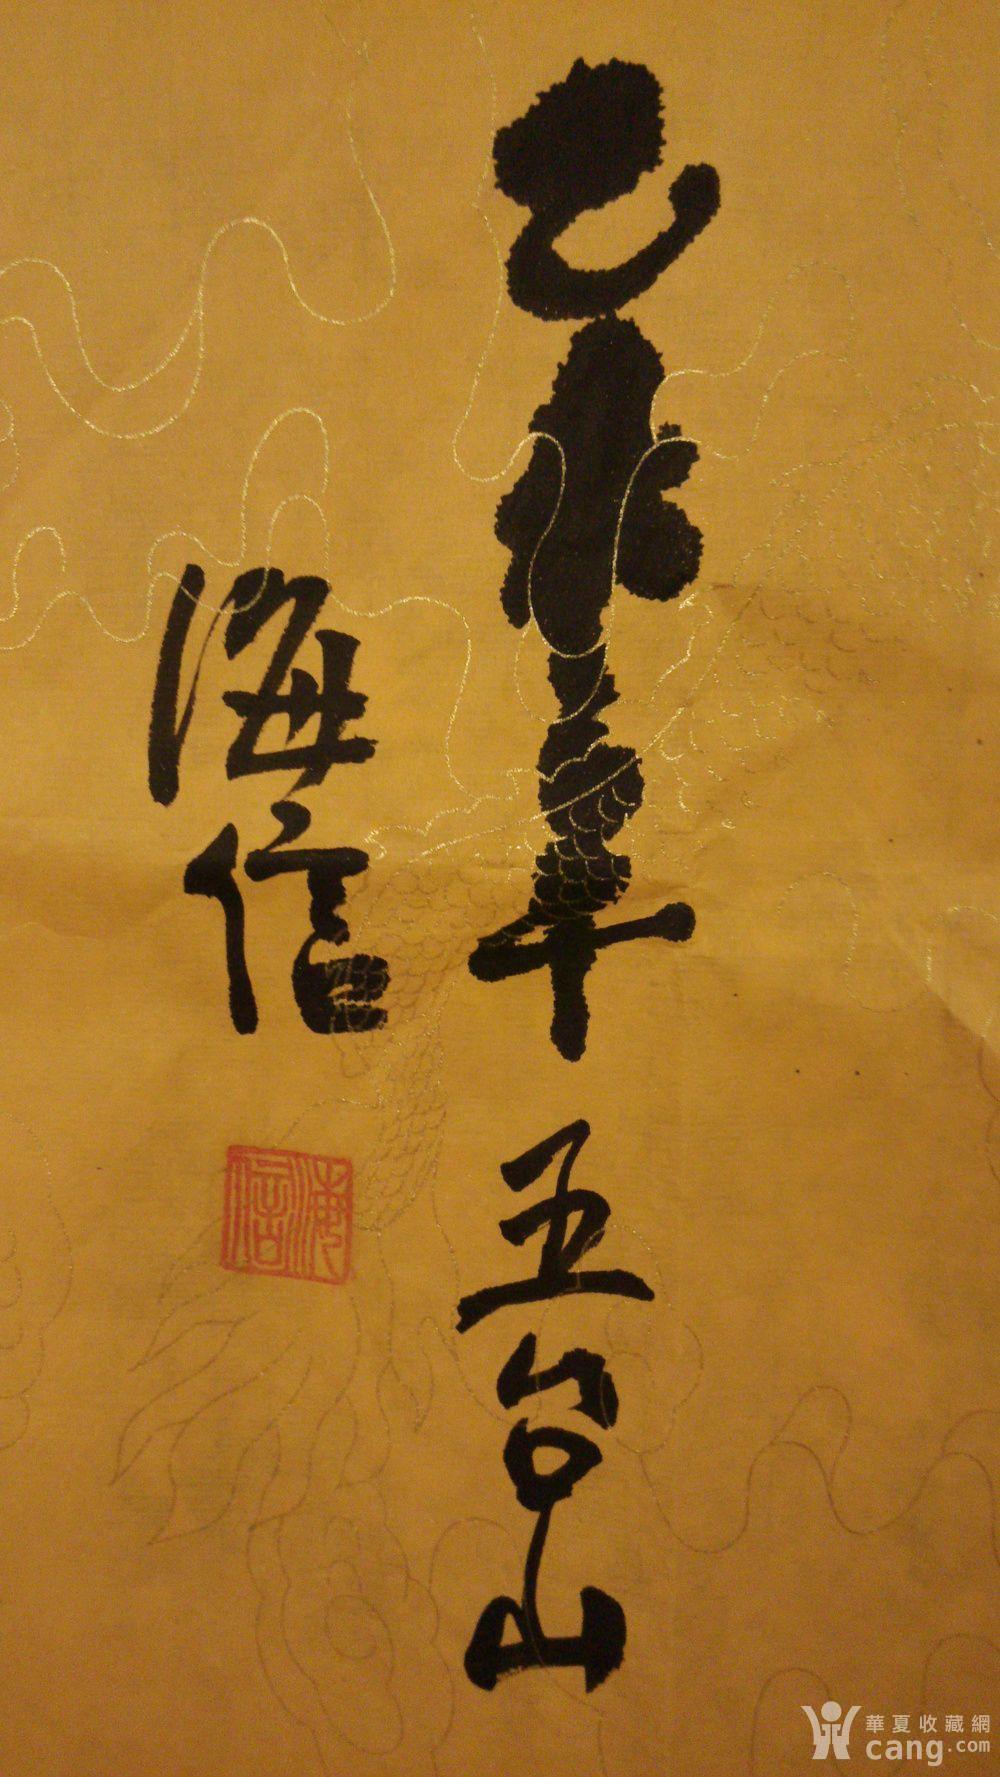 年 五台山
海信
海信
華夏收藏網
cang.com